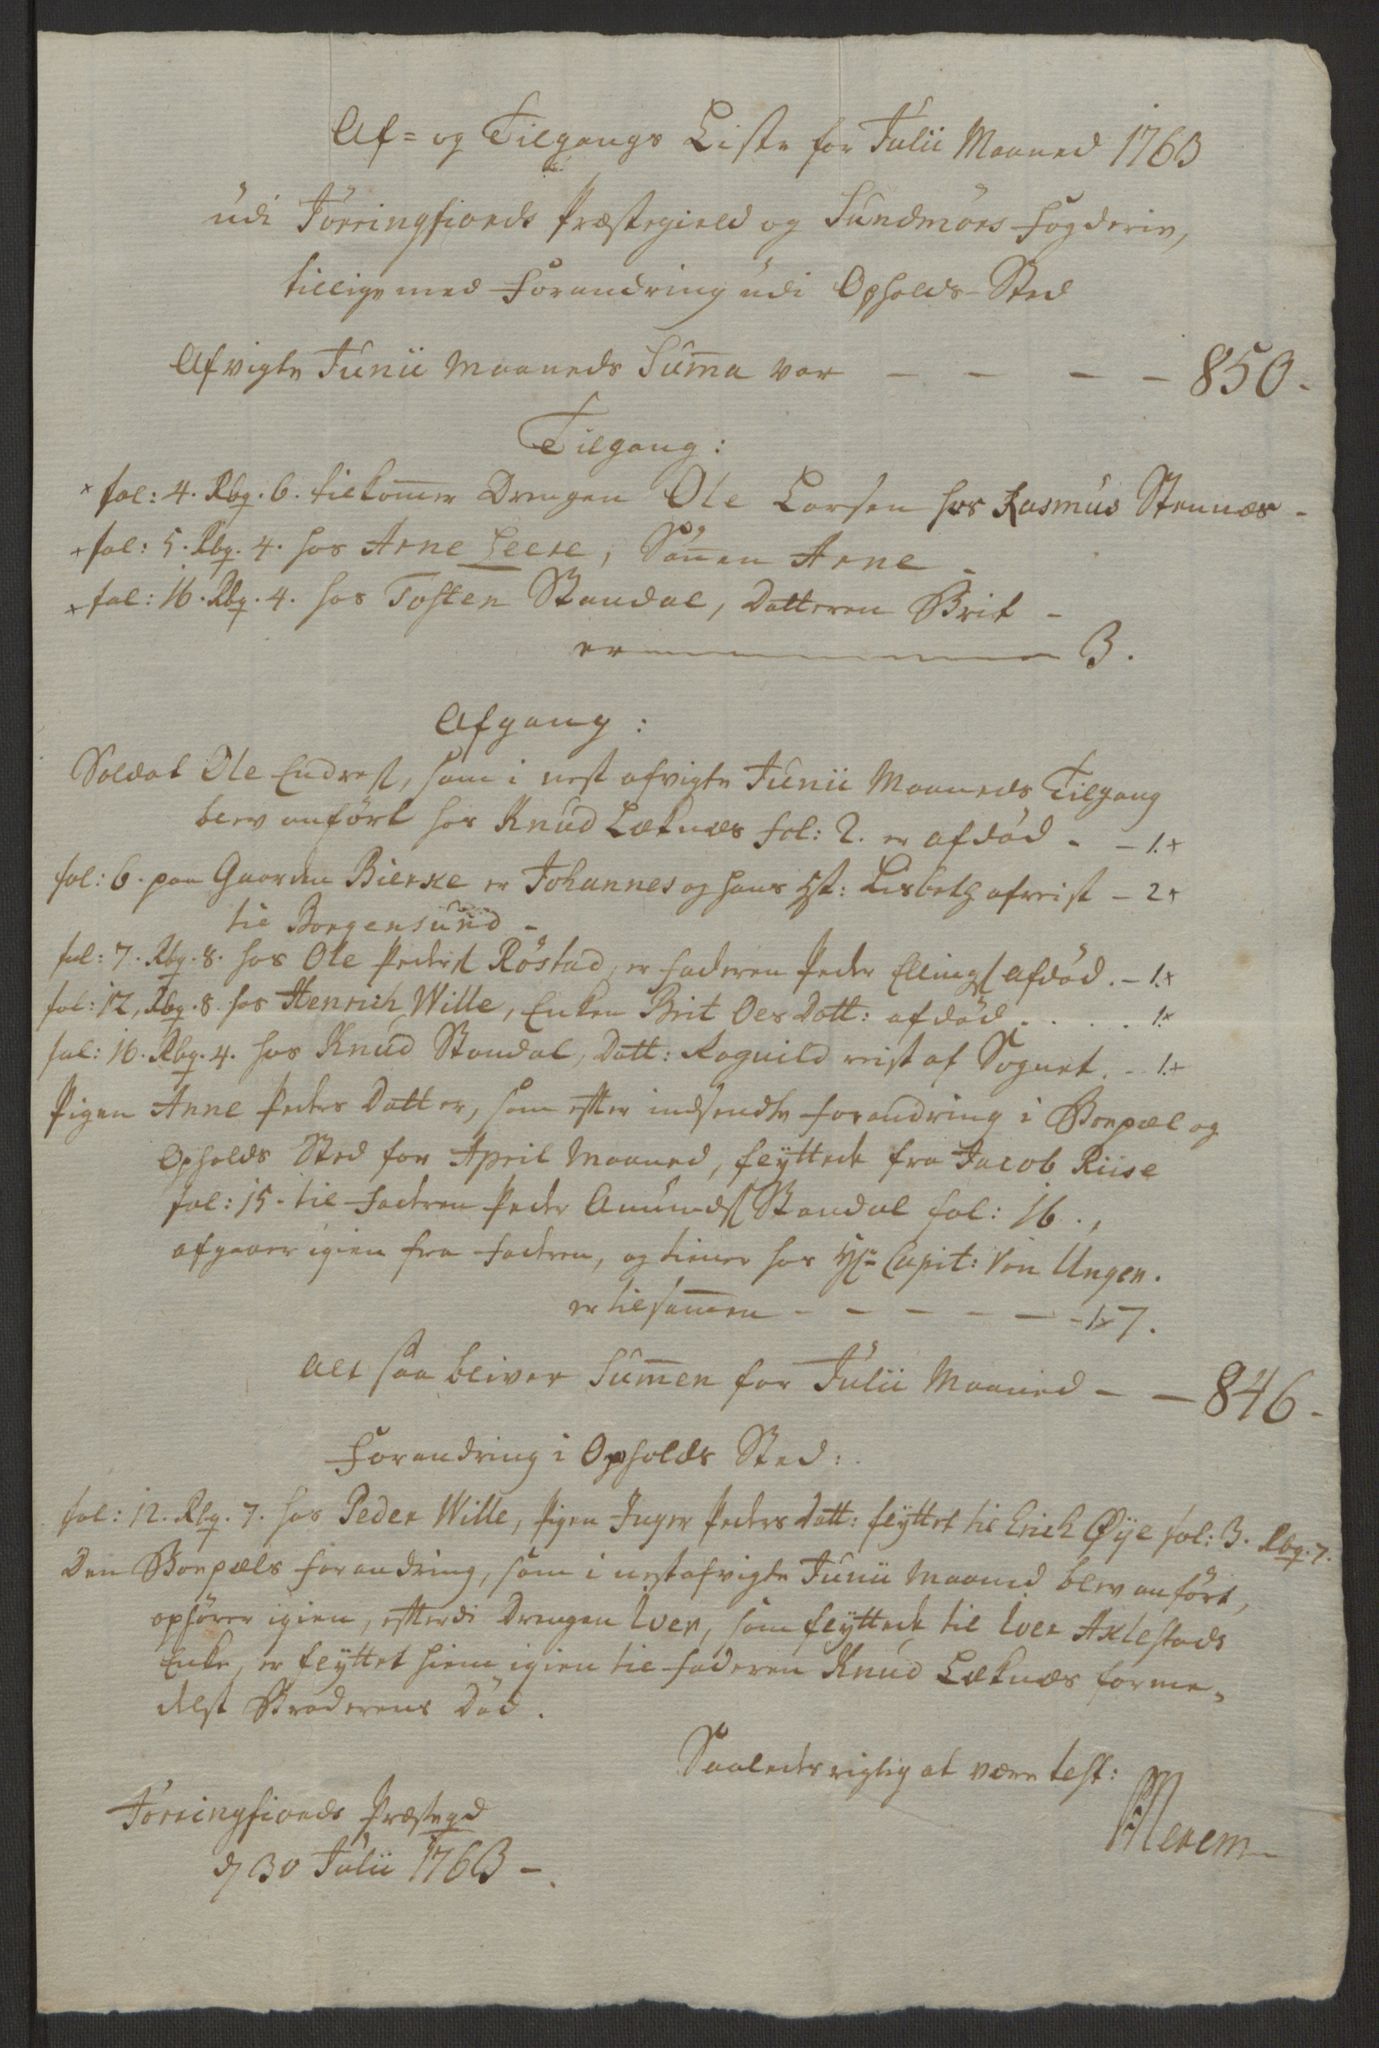 Af- og Tilgangs Liste for Julii Maaned 1763
udi Jörringfiords Præstegield og Sundmörs Fogderie,
tillige med Forandring udi Opholds-Sted
Afvigte Junii Maaneds Suma var - - - - 850.
Tilgang:
x fol: 4. Rbq. 6. tilkomer Drengen Ole Larsen hos Rasmus Stennæs -
x fol: 5. Rbq. 4. hos Arne Leere, Sönen Arne -
x fol: 16. Rbq. 4. hos Tosten Standal, Datteren Brit -
er 3.
Afgang:
Soldat Ole Endres, som i nest afvigte Junii Maaneds Tilgang
blev anfört hos Knud Leknæs fol: 2. er afdöd - - 1.x
fol: 6. paa Gaarden Bierke er Johannes og hans Hst: Lisbeth afreist - 2x
til Borgensund -
fol: 7. Rbq. 8. hos Ole Peders Röstad, er Faderen Peder Ellings afdöd. - 1.x
fol: 12, Rbq. 8. hos Henrich Wille, Enken Brit Oes Datt: afdöd . . . . . 1.x
fol: 16. Rbq. 4. hos Knud Standal, Datt: Ragnild reist af Sognet. - 1.x
Pigen Anne Peders Datter, som efter indsendte Forandring i Boepæl og
Opholds Sted for April Maaned, flÿttede fra Jacob Riise
fol: 15. til Fadren Peder Amunds Standal fol: 16.,
afgaaer igien fra Fadren, og tiener hos Hr Capit: Von Ungen.
er tilsamen - - - - - - 1x 7.
Alt saa bliver Sumen for Julii Maaned - - 846 -
Forandring i Opholds Sted:
fol: 12. Rbq. 7. hos Peder Wille, Pigen Inger Peders Datt: flÿttet til Erich Øÿe fol: 3. Rbq. 7.
Den Boepæls Forandring, som i nestafvigte Junii Maaned blev anfört,
ophörer igien, efterdi Drengen Iver, som flÿttede til Iver Axlestads
Enke, er flÿttet hiem igien til Faderen Knud Leknæs forme-
delst Broderens Död.
Saaledes rigtig at være test:
Jörringfiords Præsteg
d 30 Julii 1763 -